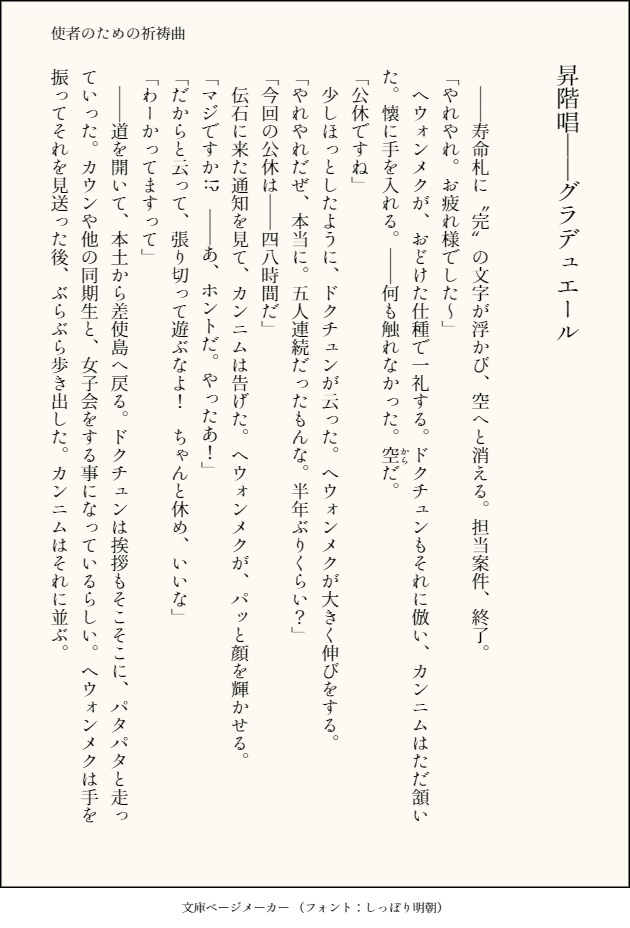 使者のための祈祷曲
昇階唱――グラデュエール
――寿命札に〝完〟の文字が浮かび、空へと消える。担当案件、終了。
「やれやれ。お疲れ様でした～」
ヘウォンメクが、おどけた仕種で一礼する。ドクチュンもそれに倣い、カンニムはただ頷い
た。懐に手を入れる。――何も触れなかった。空からだ。
「公休ですね」
少しほっとしたように、ドクチュンが云った。ヘウォンメクが大きく伸びをする。
「やれやれだぜ、本当に。五人連続だったもんな。半年ぶりくらい？」
「今回の公休は――四八時間だ」
伝石に来た通知を見て、カンニムは告げた。ヘウォンメクが、パッと顔を輝かせる。
「マジですか!?　――あ、ホントだ。やったあ！」
「だからと云って、張り切って遊ぶなよ！　ちゃんと休め、いいな」
「わーかってますって」
――道を開いて、本土から差使島へ戻る。ドクチュンは挨拶もそこそこに、パタパタと走っ
ていった。カウンや他の同期生と、女子会をする事になっているらしい。ヘウォンメクは手を
振ってそれを見送った後、ぶらぶら歩き出した。カンニムはそれに並ぶ。
文庫ページメーカー（フォント：しっぽり明朝）